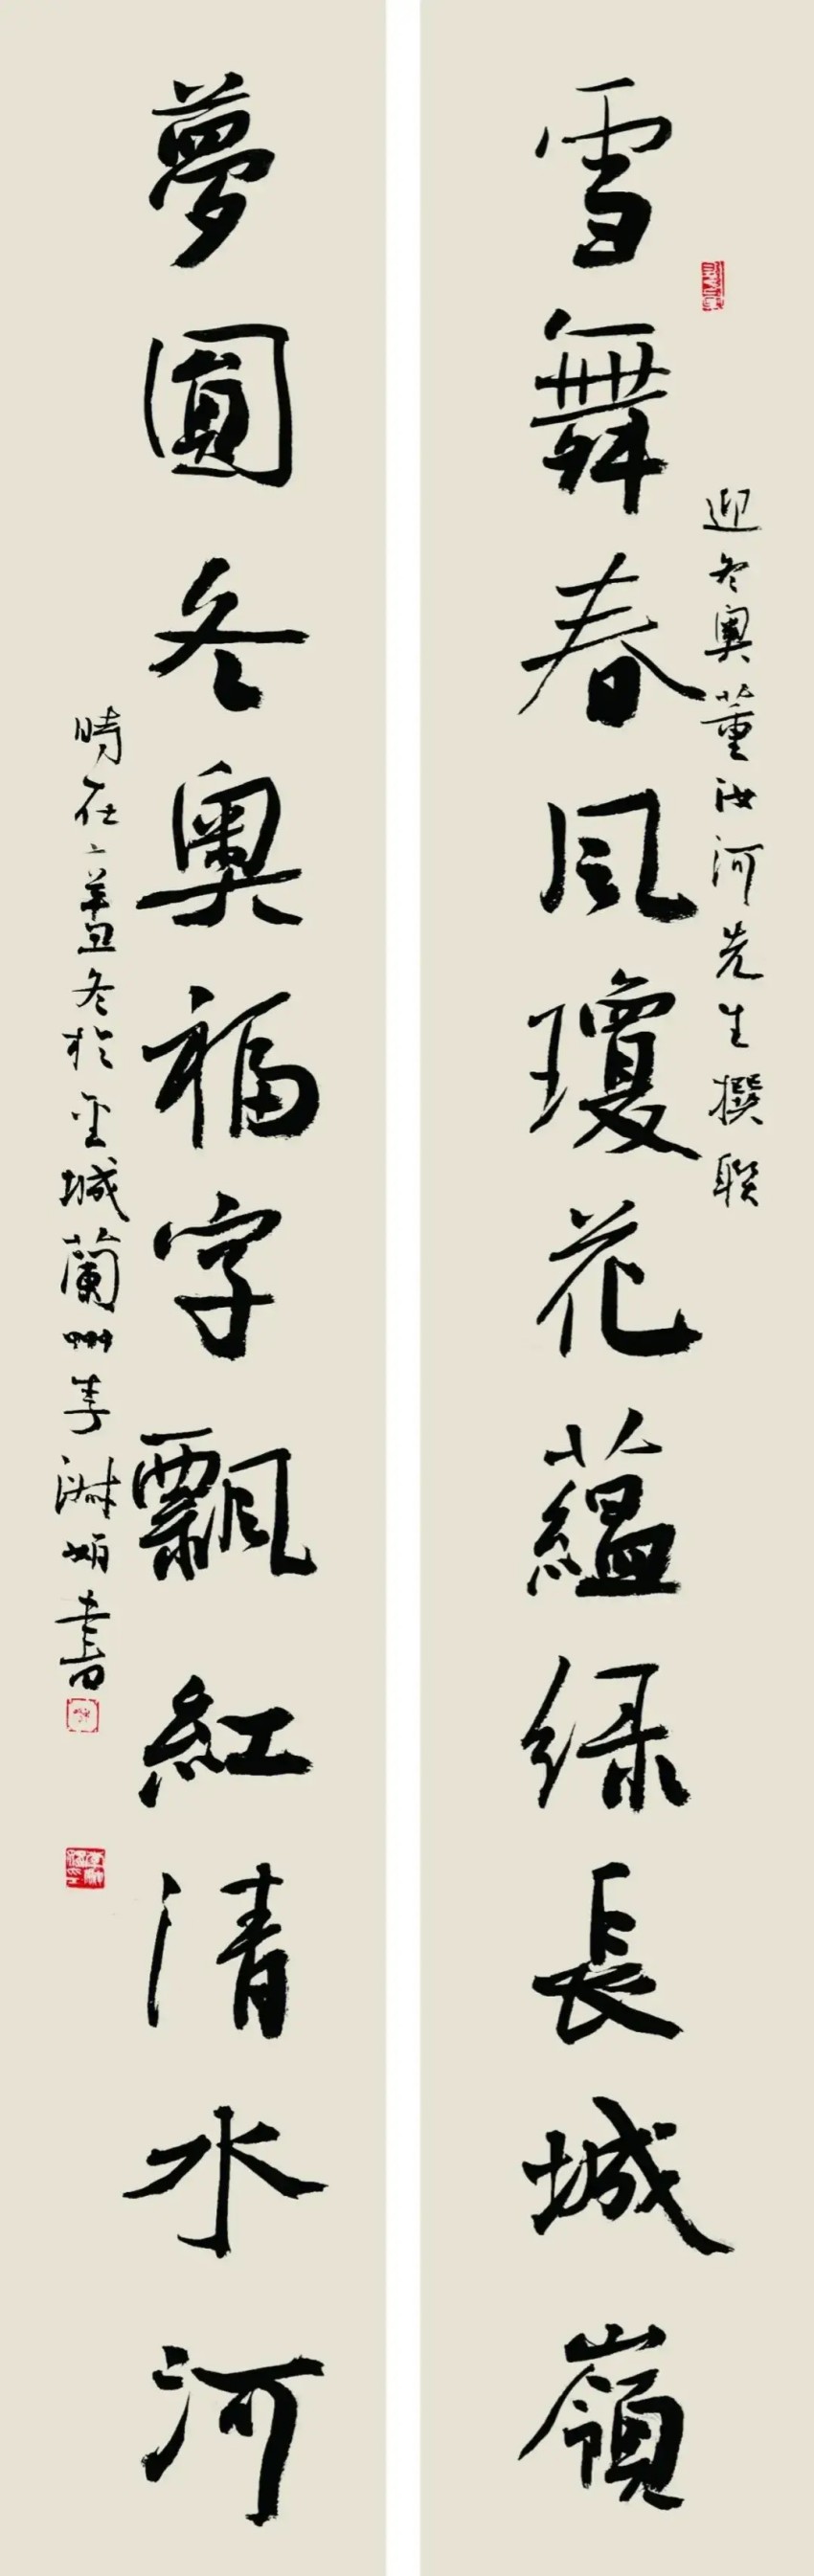 雪舞春风瓊花蘊绿長城嶺
迎冬奥董汝河先生撰联
夢圓冬奧福字飄紅清水河
時在辛丑冬於金城蘭州李淋娟書